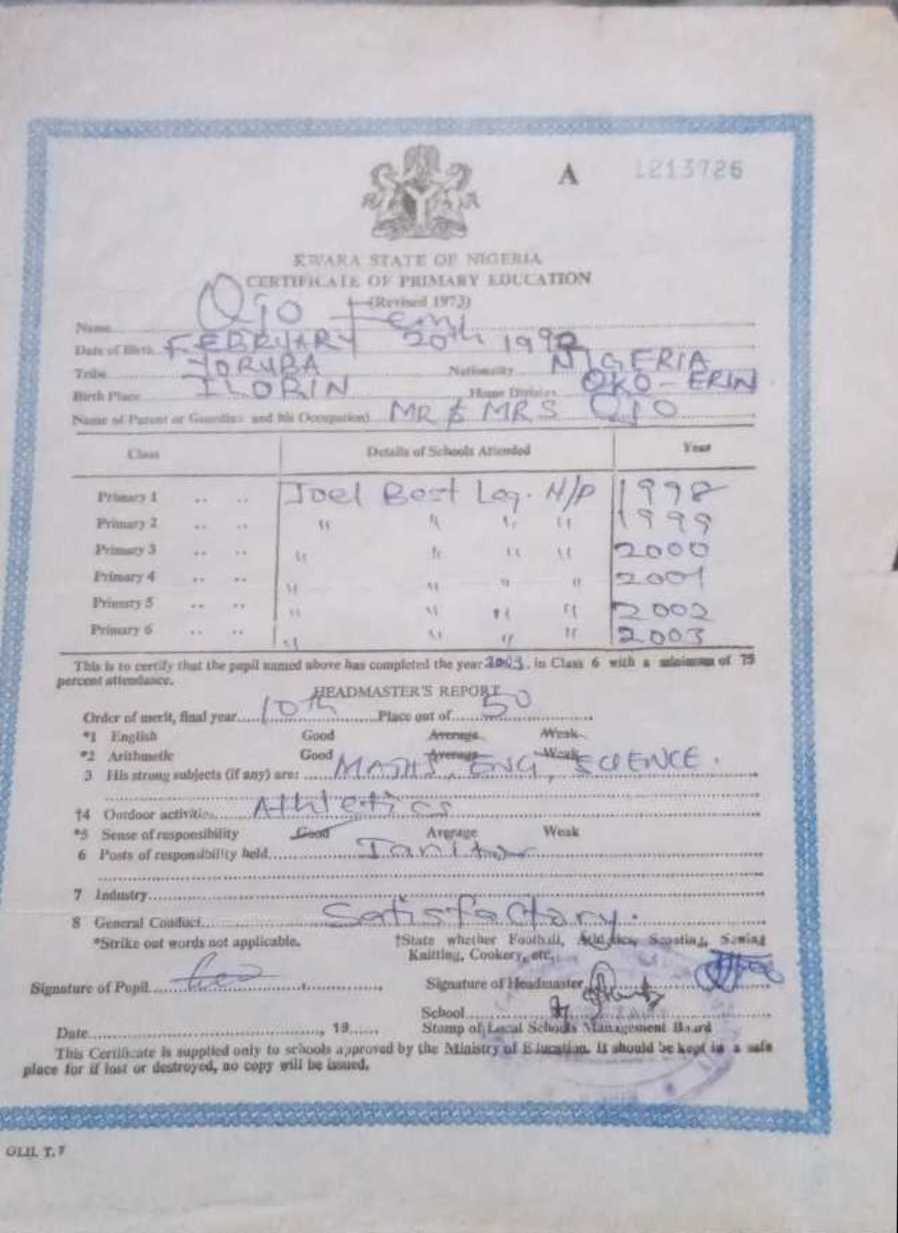 A 1213726
KWARA STATE OF NIGERIA
CERTIFICATE OF PRIMARY EDUCATION
(Revised 1973)
Name Ojo Femi
Date of Birth FEBRUARY 20th 1992
Tribe YORUBA Nationality NIGERIA
Birth Place ILORIN Home Division OKO-ERIN
Name of Parent or Guardian and his Occupation) MR & MRS OJO
Class Details of Schools Attended Year
Primary 1 .. .. Joel Best Log. N/P 1998
Primary 2 .. .. " " " " 1999
Primary 3 .. .. " " " " 2000
Primary 4 .. .. " " " " 2001
Primary 5 .. .. " " " " 2002
Primary 6 .. .. " " " " 2003
This is to certify that the pupil named above has completed the year 2003, in Class 6 with a minimum of 75
percent attendance.
HEADMASTER'S REPORT
Order of merit, final year 10th Place out of 50
*1 English Good Average Weak
*2 Arithmetic Good Average Weak
3 His strong subjects (if any) are: MATHS, ENG, SCIENCE.
†4 Outdoor activities Athletics
*5 Sense of responsibility Good Average Weak
6 Posts of responsibility held Janitor
7 Industry
8 General Conduct Satisfactory.
*Strike out words not applicable. †State whether Football, Athletics, Scouting, Sewing
Knitting, Cookery, etc.
Signature of Pupil Signature of Headmaster
School
Date , 19 Stamp of Local Schools Management Board
This Certificate is supplied only to schools approved by the Ministry of Education. It should be kept in a safe
place for if lost or destroyed, no copy will be issued.